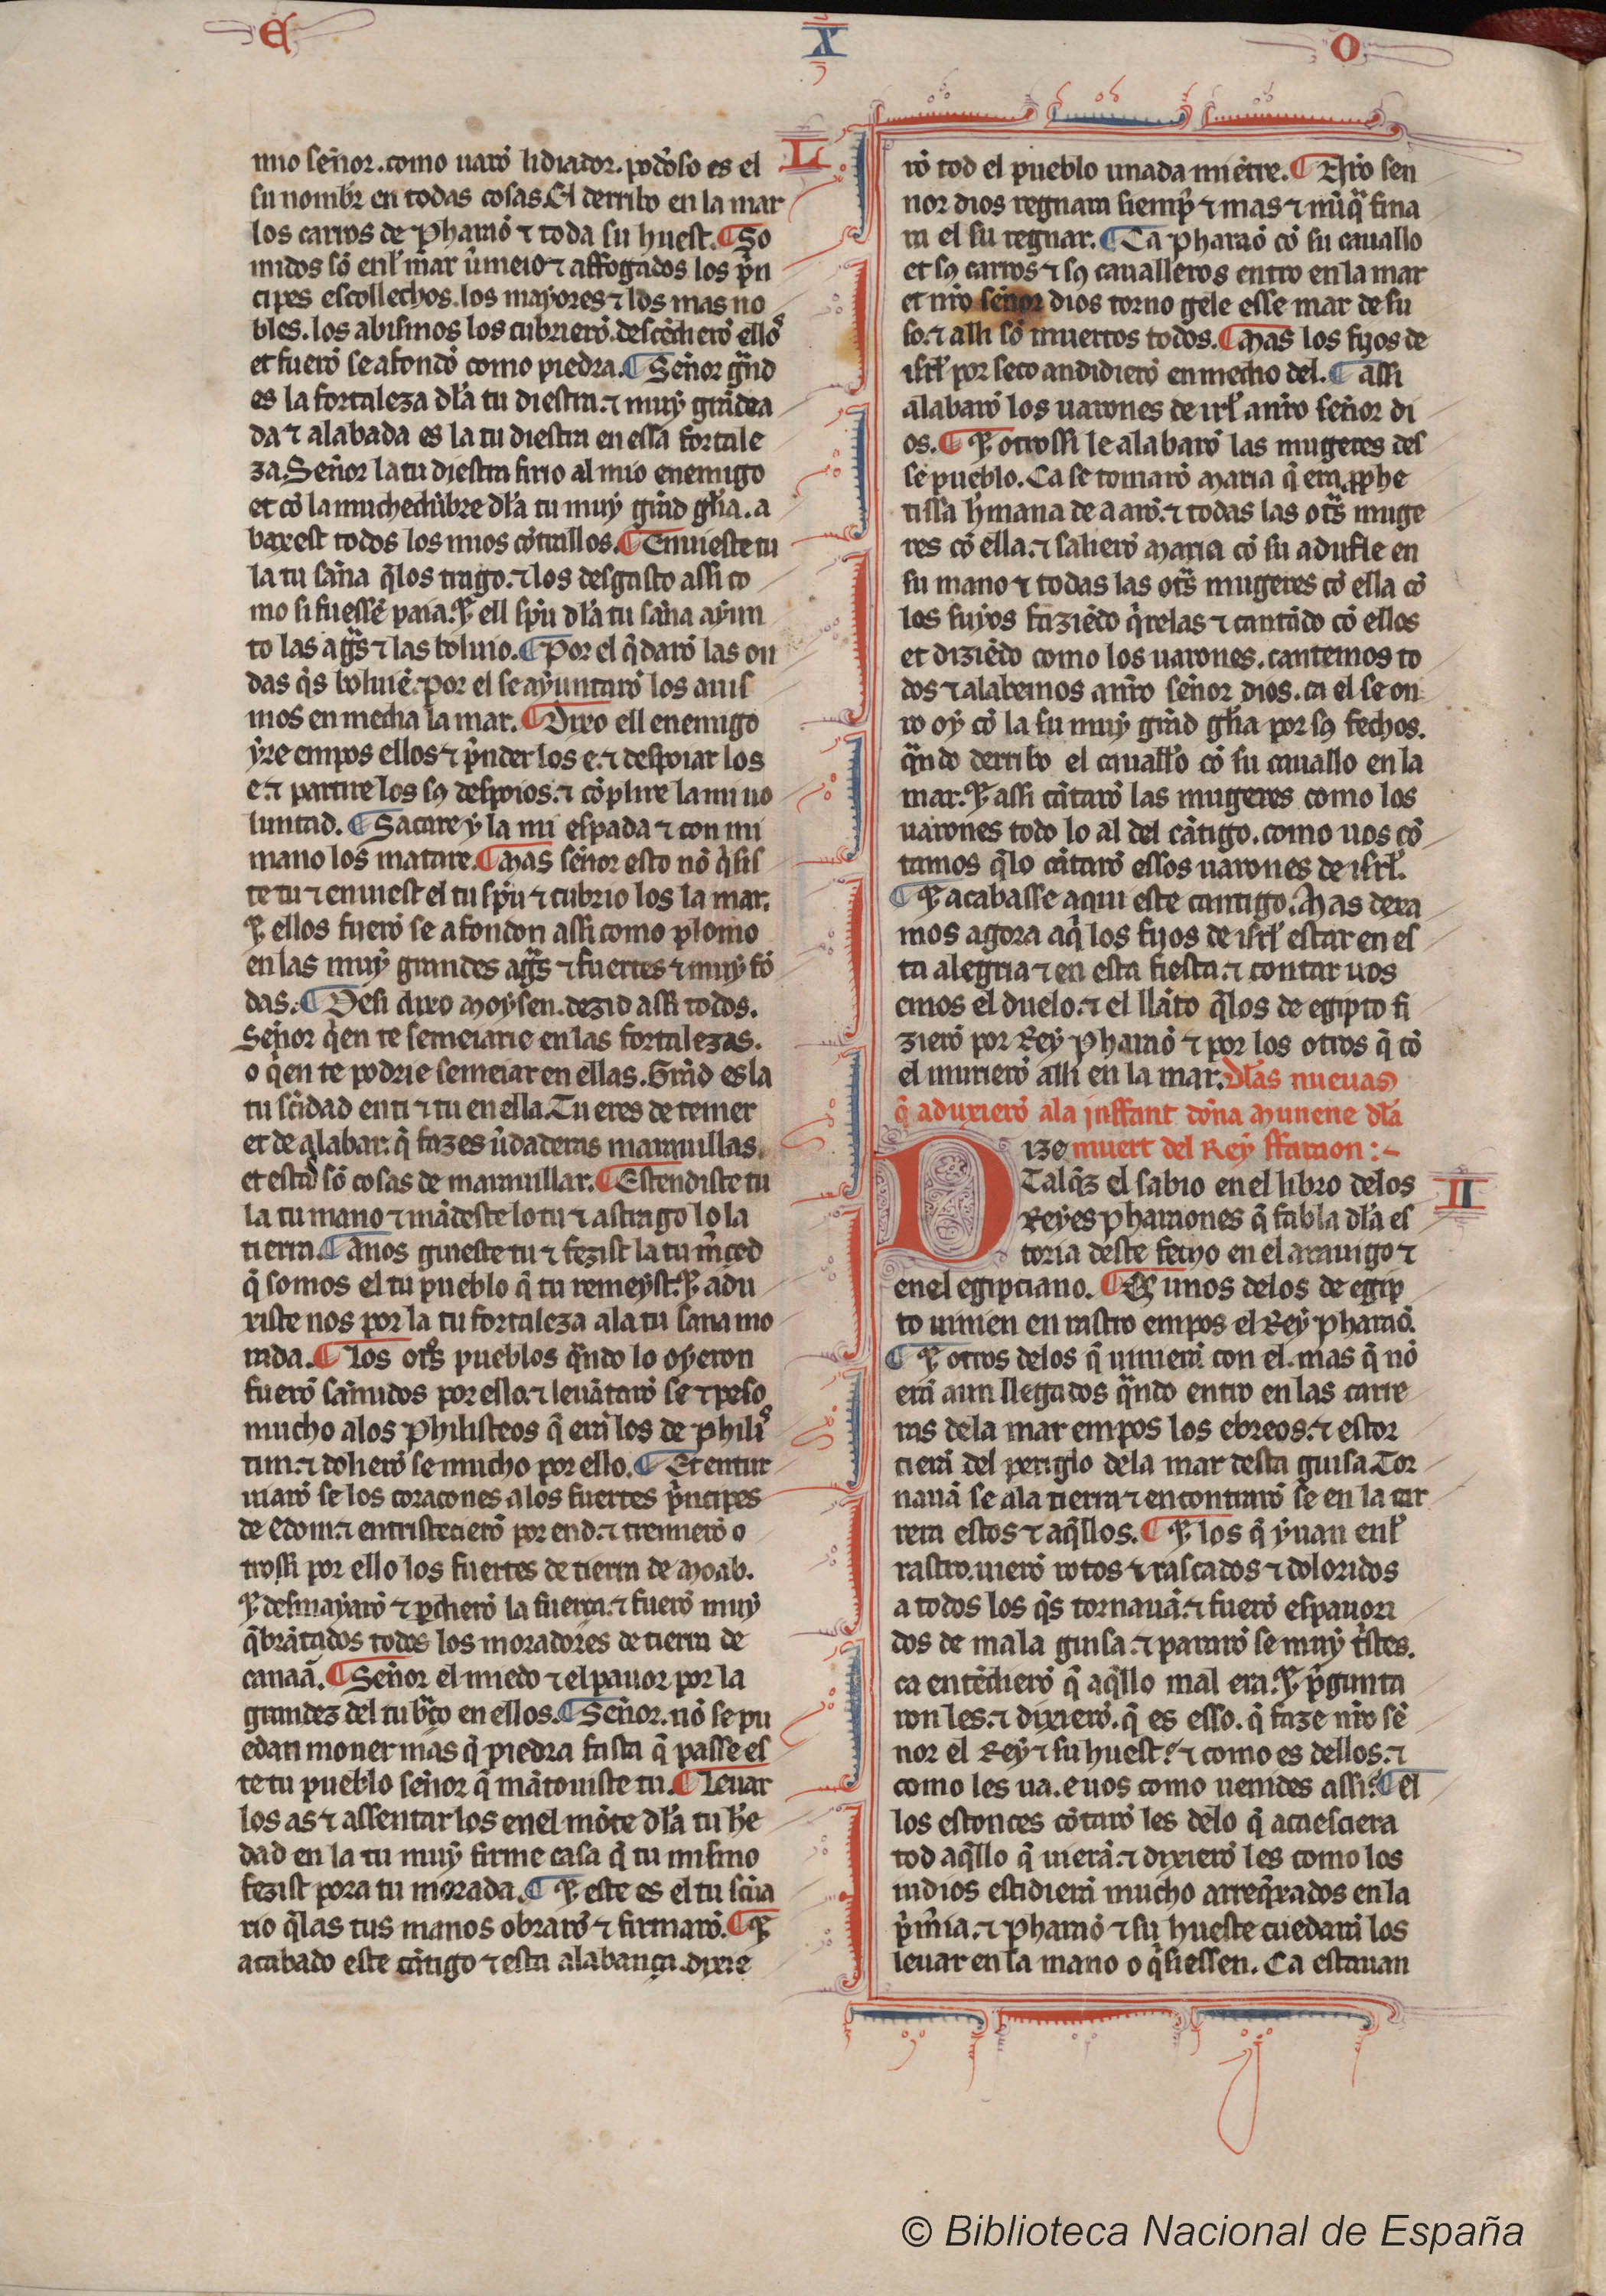 E
X
O
mio sennor. como uarõ lidiador. pod'oso es el
su nombr̃ en todas cosas. El derribo en la mar
los carros de pharaõ ⁊ toda su huest. ¶ So
midos sõ enl̃ mar ũmeio ⁊ affogados los p̃n
cipes escollechos. los mayores ⁊ los mas no
bles. los abismos los cubrierõ. descẽdierõ ellos
et fuerõ se a fondõ como piedra. ¶ Señor grãd
es la fortaleza dl̃a tu diestra. ⁊ muy grãdea
da ⁊ alabada es la tu diestra en essa fortale
za. Señor la tu diestra firio al mio enemigo
et cõ la muchedũbre dl̃a tu muy grãd gl̃ia. a
baxest todos los mios cõtrallos. ¶ Enuieste tu
la tu saña q̃los trago. ⁊ los desgasto assi co
mo si fuessẽ paia. E ell sp̃u dl̃a tu saña ayun
to las aguas ⁊ las boluio. ¶ Por el q̃darõ las on
das q̃s boluiẽ. por el se ayuntarõ los auis
mos en media la mar. ¶ Dixo ell enemigo
yre empos ellos ⁊ p̃nder los e. ⁊ despoiar los
e. ⁊ partire los sꝯ despoios. ⁊ cõplire la mi uo
luntad. ¶ Sacare y la mi espada ⁊ con mi
mano los matare. ¶ Mas señor esto nõ q̃sis
te tu ⁊ enuiest el tu sp̃u ⁊ cubrio los la mar.
E ellos fuerõ se a fondon assi como plomo
en las muy grandes aguas ⁊ fuertes ⁊ muy fõ
das. ¶ Desi dixo Moysen. dezid assi todos.
Señor q̃en te semeiarie en las fortalezas.
o q̃en te podrie semeiar en ellas. Grãd es la
tu sc̃idad en ti ⁊ tu en ella. Tu eres de temer
et de alabar. q̃ fazes ũdaderas marauillas.
et estas sõ cosas de marauillar. ¶ Estendiste tu
la tu mano ⁊ mãdeste lo tu ⁊ astrago lo la
tierra. ¶ A nos guieste tu ⁊ fezist la tu m̃ced
q̃ somos el tu pueblo q̃ tu remeyst. E adu
xiste nos por la tu fortaleza a la tu sana mo
rada. ¶ Los ot̃os pueblos quando lo oyeron
fuerõ sañudos por ello. ⁊ leuãtarõ se ⁊ peso
mucho alos Philisteos q̃ erã los de philis
tim. ⁊ dolierõ se mucho por ello. ¶ Et entur
uiarõ se los coraçones alos fuertes p̃ncipes
de Edom. ⁊ entristecierõ por end. ⁊ tremierõ o
trossi por ello los fuertes de tierra de Moab.
E desmayarõ ⁊ ꝑdierõ la fuerça. ⁊ fuerõ muy
q̃brãtados todos los moradores de tierra de
canaã. ¶ Señor el miedo ⁊ el pauor por la
grandez del tu braço en ellos. ¶ Señor. nõ se pu
edan mouer mas q̃ piedra fasta q̃ passe es
te tu pueblo señor q̃ mãtouiste tu. ¶ Leuar
los as ⁊ assentar los en el mõte dl̃a tu he
dad en la tu muy firme casa q̃ tu mismo
fezist pora tu morada. ¶ E este es el tu sc̃ua
rio q̃las tus manos obrarõ ⁊ firmarõ. ¶ E
acabado este cãtigo ⁊ esta alabança. dixie
L
rõ tod el pueblo unada miẽtre. ¶ Nr̃o sen
nor dios regnara siemp̃ ⁊ mas ⁊ nũq̃ fina
ra el su regnar. ¶ Ca pharaõ cõ su cauallo
et sꝯ carros ⁊ sꝯ caualleros entro en la mar
et nr̃o señor dios torno gele esse mar de su
so. ⁊ alli sõ muertos todos. ¶ Mas los fijos de
isrl̃ por seco andidierõ en medio del. ¶ assi
alabarõ los uarones de irl̃ a nr̃o señor di
os. ¶ E otrossi le alabarõ las mugeres des
se pueblo. Ca se tomarõ Maria q̃ era ꝓphe
tissa h̃mana de aarõ. ⁊ todas las ot̃as muge
res cõ ella. ⁊ salierõ Maria cõ su adufle en
su mano ⁊ todas las ot̃as mugeres cõ ella cõ
los suyos faziẽdo q̃relas ⁊ cantãdo cõ ellos
et diziẽdo como los uarones. cantemos to
dos ⁊ alabemos a nr̃o señor dios. ca el se on
ro oy cõ la su muy grãd gl̃ia por sꝯ fechos.
quando derribo el cauall̃o cõ su cauallo en la
mar. E assi cãtarõ las mugeres como los
uarones todo lo al del cãtigo. como uos cõ
tamos q̃lo cãtarõ essos uarones de isrl̃.
¶ E acabasse aqui este cantigo. Mas dexa
mos agora aq̃ los fijos de isrl̃ estar en es
ta alegria ⁊ en esta fiesta. ⁊ contar uos
emos el duelo. ⁊ el llãto q̃los de egipto fi
zierõ por Rey pharaõ ⁊ por los otros q̃ cõ
el murierõ alli en la mar. Dl̃as nueuas
q̃ aduxierõ ala inffant doña Munene dl̃a
muert del Rey ffaraon :~
Dize
Talq̃z el sabio en el libro delos
Reyes pharaones q̃ fabla dl̃a es
toria deste fecho en el arauigo ⁊
en el egipciano. ¶ Q̃ unos delos de egip
to uinien en rastro empos el Rey pharaõ.
¶ E otros delos q̃ uinierã con el. mas q̃ nõ
erã aun llegados quando entro en las carre
ras dela mar empos los ebreos. ⁊ estor
cierã del periglo dela mar desta guisa. Tor
nauã se ala tierra ⁊ encontrarõ se en la car
rera estos ⁊ aq̃llos. ¶ E los q̃ yuan enl̃
rastro. uierõ rotos ⁊ rascados ⁊ doloridos
a todos los q̃s tornauã. ⁊ fuerõ espauori
dos de mala guisa. ⁊ pararõ se muy t̃stes.
ca entẽdierõ q̃ aq̃llo mal era. E p̃gunta
ron les. ⁊ dixierõ. q̃ es esso. q̃ faze nr̃o sẽ
nor el Rey ⁊ su huest? ⁊ como es dellos. ⁊
como les ua. e uos como uenides assi? ¶ El
los estonces cõtarõ les delo q̃ acaesciera
tod aq̃llo q̃ uierã. ⁊ dixierõ les como los
iudios estidierã mucho arreq̃xados en la
p̃m̃ia. ⁊ pharaõ ⁊ su hueste cuedarã los
leuar en la mano o q̃siessen. Ca estauan
II
© Biblioteca Nacional de España